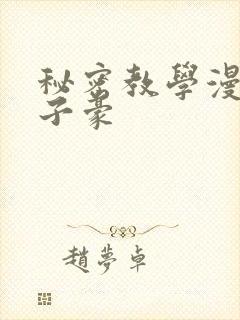 秘密教學漫
子豪
趙夢卓